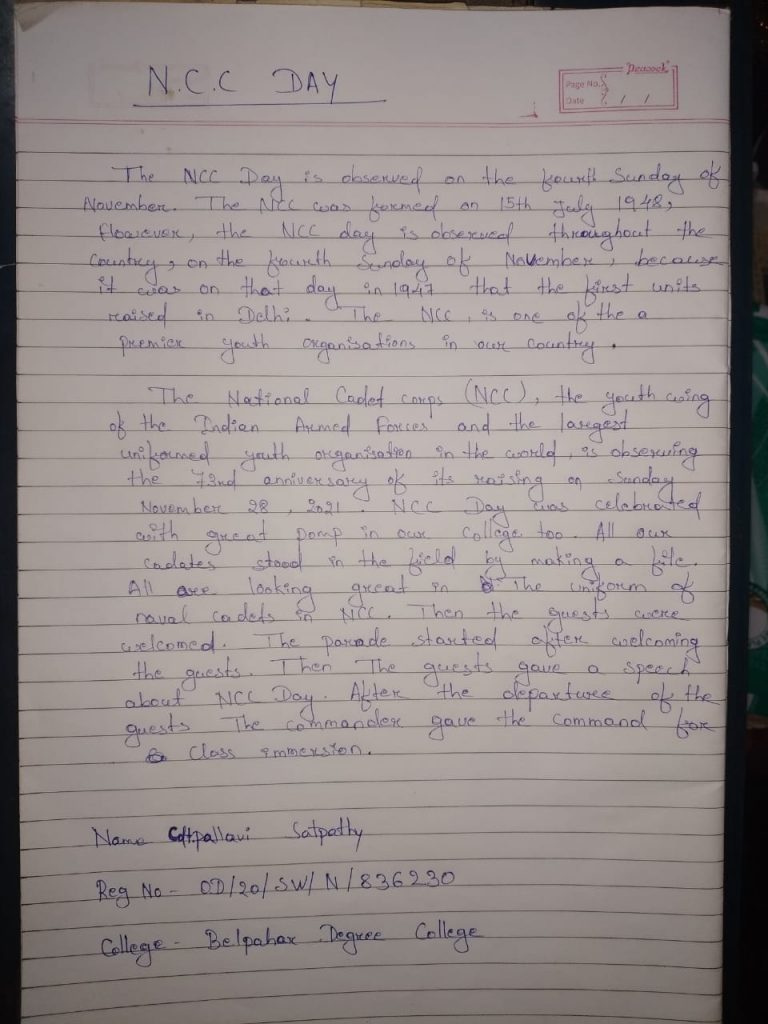 N.C.C DAY
Peacock
Page No.
Date / /
The NCC Day is observed on the fourth Sunday of
November. The NCC was formed on 15th July 1948,
However, the NCC day is observed throughout the
Country, on the fourth Sunday of November, because
it was on that day in 1947 that the first units
raised in Delhi. The NCC, is one of the a
premier youth organisations in our country.
The National Cadet corps (NCC), the youth wing
of the Indian Armed Forces and the largest
uniformed youth organisation in the world, is observing
the 73rd anniversary of its raising on Sunday
November 28, 2021. NCC Day was celebrated
with great pomp in our College too. All our
cadates stood in the field by making a file.
All are looking great in The uniform of
naval cadets in NCC. Then the guests were
welcomed. The parade started after welcoming
the guests. Then The guests gave a speech
about NCC Day. After the departure of the
guests The commander gave the Command for
Class immersion.
Name Cdt. pallavi Satpathy
Reg No - OD/20/SW/N/836230
College - Belpahar Degree College